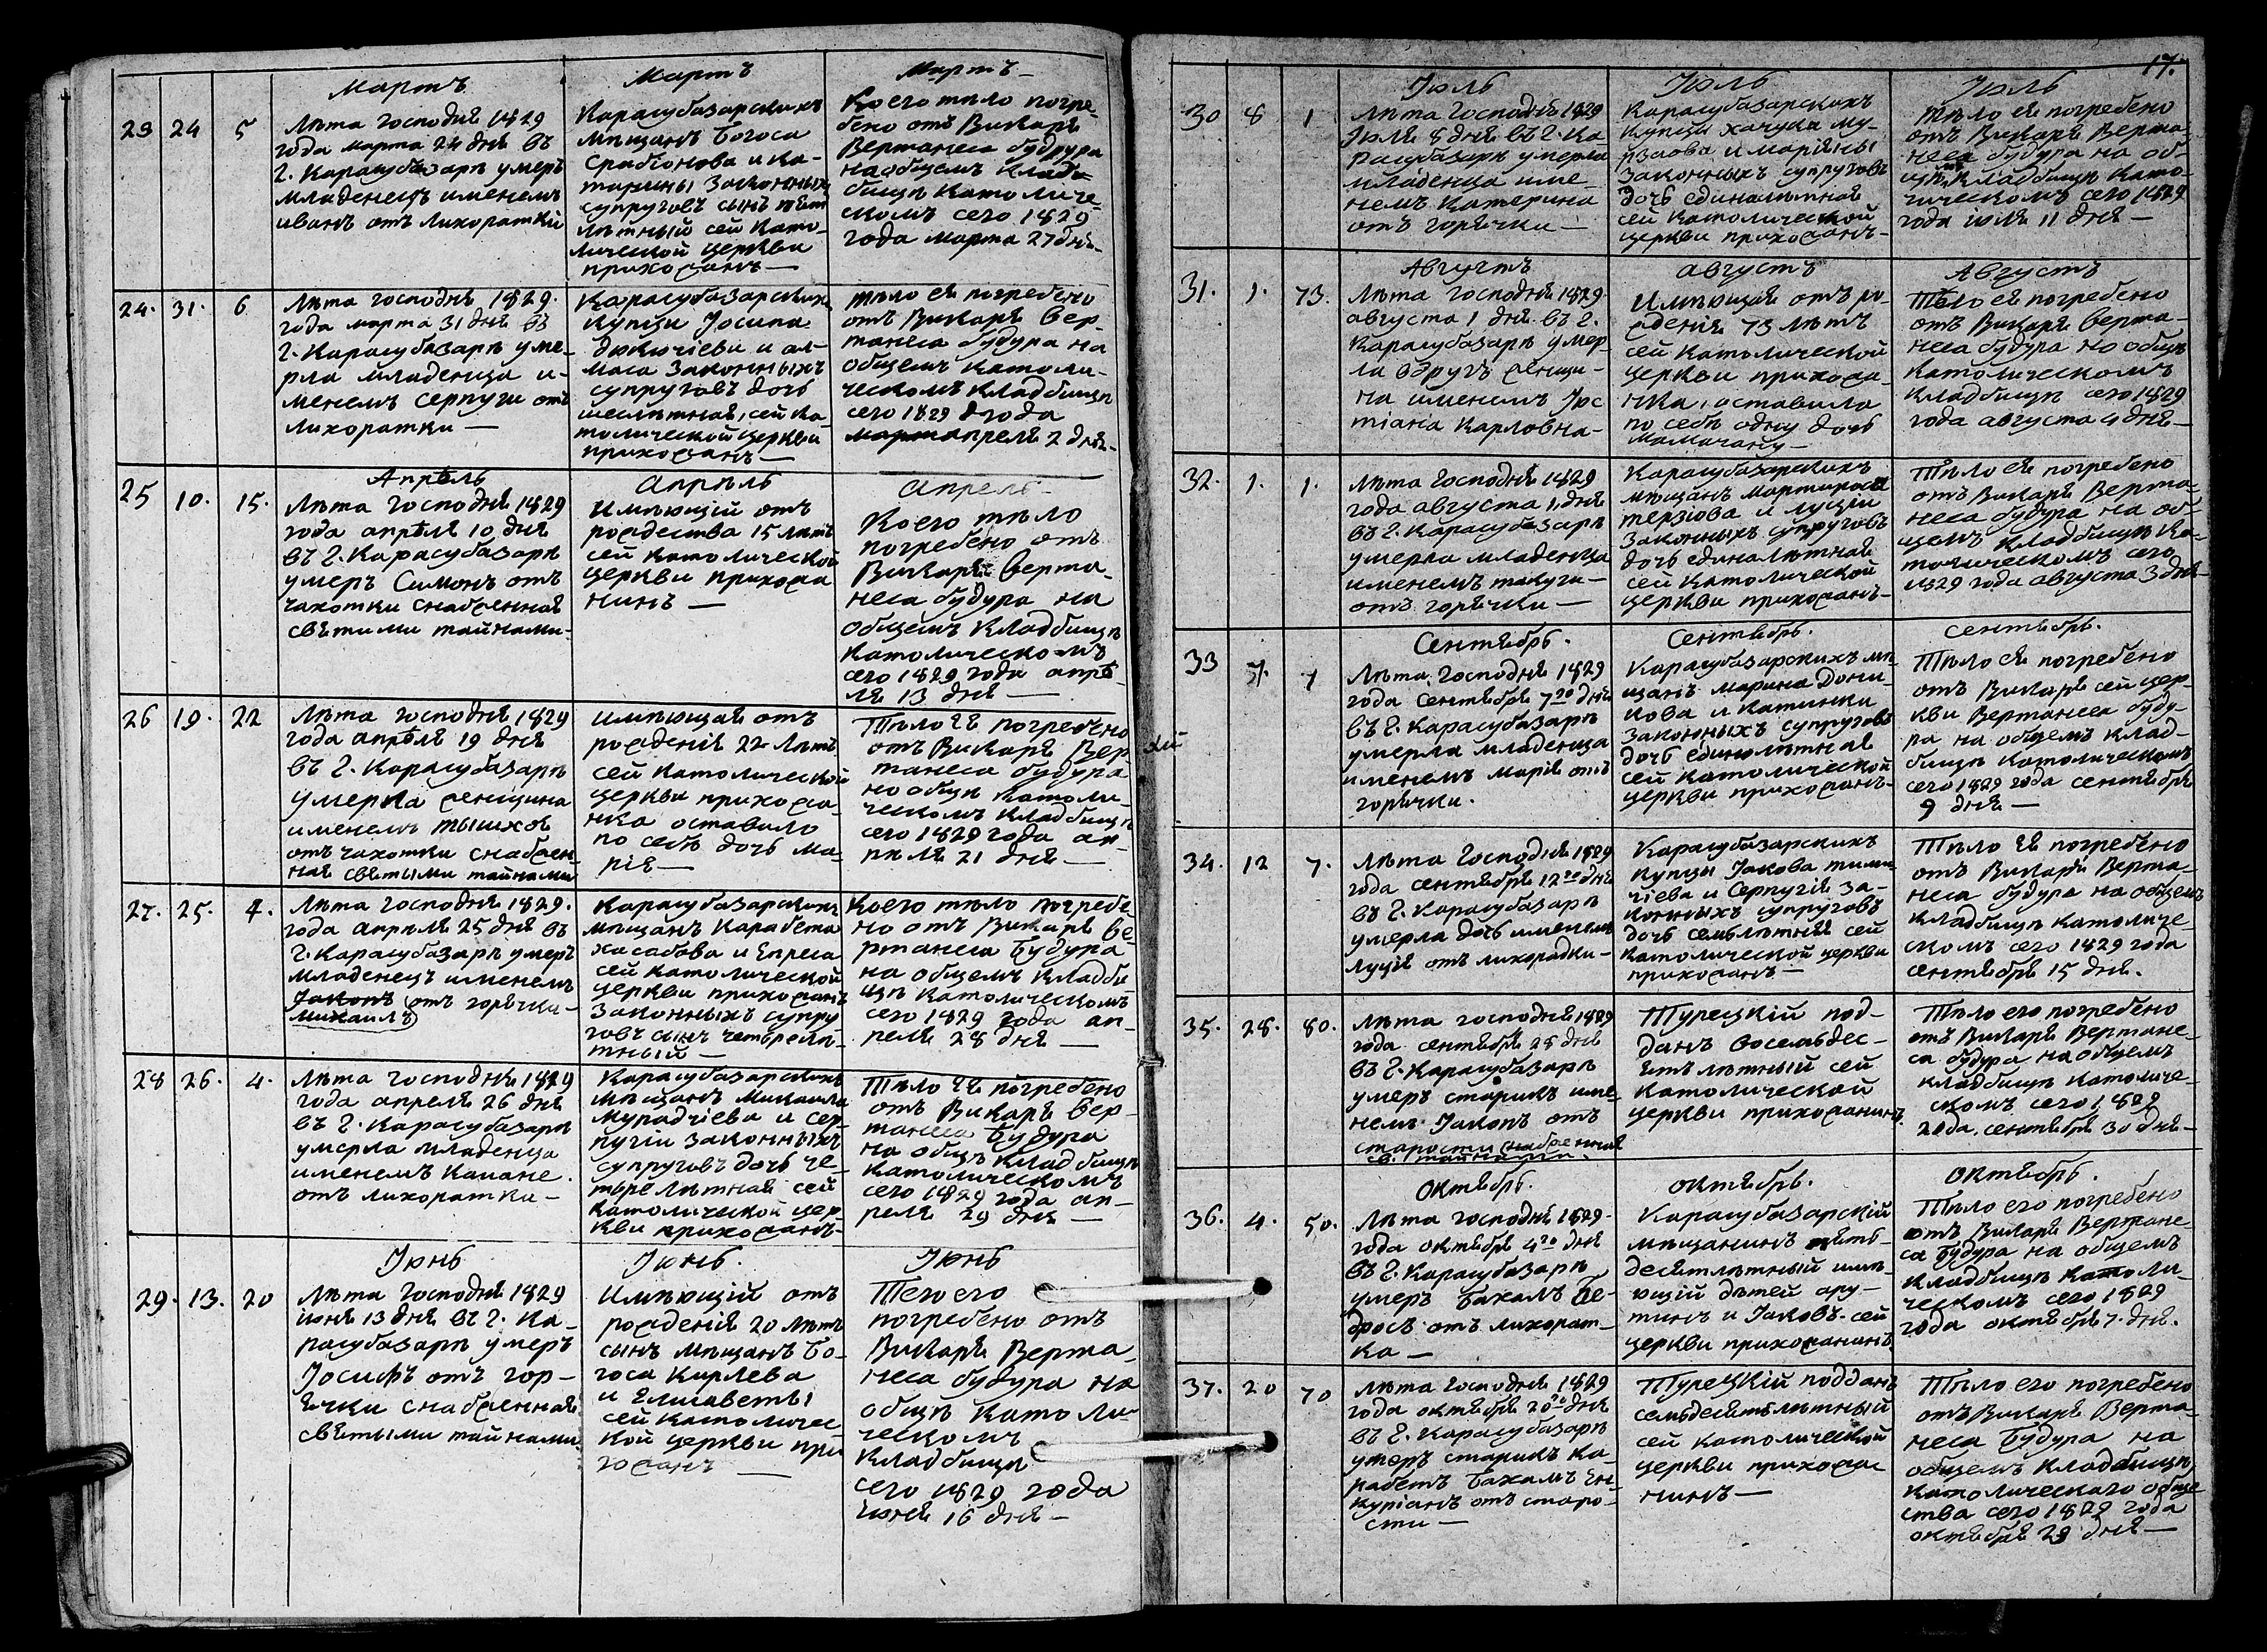 Мартъ
Мартъ
Мартъ
23 24 5
Лѣта господня 1829
года марта 24 дня въ
г. Карасубазарѣ умеръ
младенецъ именемъ
иванъ отъ лихораткій
Карасубазарскихъ
мѣщанъ Богоса
Срабіонова и Ка-
тарины законныхъ
супруговъ сынъ пяти
лѣтный сей Като-
лической церкви
прихожанъ —
Коего тѣло погре-
бено отъ Викарія
Вертанеса будура
наобщемъ кладо
бищѣ Католиче-
скомъ сего 1829
года марта 27 дня
24. 31. 6
Лѣта господня 1829.
года марта 31 дня въ
г. Карасубазарѣ уме-
рла младеница и-
менемъ серпуги отъ
лихоратки —
Карасубазарскихъ
купцы Јосипа
дюкичіева и ал-
маса законныхъ
супруговъ дочь
шеслѣтная, сей ка-
толической церкви
прихожанъ —
тѣло ея погребено
отъ Викарія вер-
танеса будура на
общемъ католи-
ческомъ кладбищѣ
сего 1829 года
апреля 2 дня.
Апрѣль
Апрѣль
Апрель
25 10. 15.
Лѣта господня 1829
года апрѣля 10 дня
въ г. Карасубазарѣ
умеръ Симонъ отъ
чахотки снабженная
святими тайнами.
Имѣющій отъ
рождества 15 лѣтъ
сей католической
церкви прихожа
нинъ —
Коего тѣло
погребено отъ
Викарія верта-
неса будура на
общемъ кладбищѣ
католическомъ
сего 1829 года апрѣ
ля 13 дня —
26 19. 22
Лѣта господня 1829
года апрѣля 19 дня
въ г. Карасубазарѣ
умерла женщина
именемъ тышхоя
отъ чахотки снабжен-
ная святыми тайнами
имѣющая отъ
рожденія 22 лѣтъ
сей католической
церкви прихожа-
нка оставило
по себѣ дочь ма-
рія —
Тѣло Ея погребено
отъ Викарія Вер-
танеса будура
но общѣ католи-
ческомъ кладбищѣ
сего 1829 года ап-
рѣля 21 дня —
27. 25. 4.
Лѣта господня 1829.
года апреля 25 дня въ
г. Карасубазарѣ умеръ
младенецъ именемъ
Јакопъ отъ горячки —
михаилъ
Карасубазарскихъ
мѣщанъ Карабета
хасабова и Епреса
сей католической
церкви прихожанъ
законныхъ супру
говъ сынъ четырелѣ-
тный —
Коего тѣло погребе-
но отъ Викарія Ве-
ртанеса Будура
на общемъ кладби
щѣ католическомъ
сего 1829 года ап-
реля 28 дня —
28 26. 4.
Лѣта господня 1829
года апреля 26 дня
въ г. Карасубазарѣ
умерла младенца
именемъ канане.
отъ лихоратка —
Карасубазарскихъ
мѣщанъ Микаила
мурадчіева и сер-
пугіи законныхъ
супруговъ дочь че-
тырелѣтная сей
католической цер
кви прихожанъ
Тѣло Ея погребено
отъ Викарія вер-
танеса Будура
на общѣ кладбищѣ
католическомъ
сего 1829 года ап-
реля 29 дня —
Јюнь
Јюнь.
Јюнь
29. 13. 20
Лѣта господня 1829
июня 13 дня въ г. Ка-
расубазарѣ умеръ
Јосифъ отъ гор-
ячки снабженная
святыми тайнами
Имѣющій отъ
рожденія 20 лѣтъ
сынъ мѣщанъ Бо-
госа Кирлева
и Елисаветы
сей католичес-
кой церкви при
гожанъ —
Тего его
погребено отъ
Викарія Верта-
неса будура на
общѣ католи-
ческомъ
кладбищѣ
сего 1829 года
июня 16 дня —
17.
Јюль
Јюль
Јюль
30 8 1
Лѣта господнѣ 1829
Јюля 8 дня въ г. Ка-
расубазарѣ умерла
младенца име-
немъ катерина
отъ горячки —
Карасубазарскихъ
купцы хачука му-
рзаова и маріяны
законныхъ супруговъ
дочь единалѣтная
сей католической
церкви прихожанъ —
Тѣло ея погребено
отъ Викарія Верта-
неса будура на об-
щемъ кладбищѣ като-
личическомъ сего 1829
года июля 11 дня —
Августъ
Августъ
Августъ
31. 1. 73.
Лѣта господня 1829.
августа 1 дня въ г.
Карасубазарѣ умер-
ла вдругъ женщи-
на именемъ Јус
тіана Карловна —
Имѣющая отъ ро-
жденія 73 лѣтъ
сей католической
церкви прихожа-
нка, оставила
по себѣ одну дочь
мамачану —
Тѣло ея погребено
отъ Викарія верта-
неса будура но общѣ
католическомъ
кладбищѣ сего 1829
года августа 4 дня —
32. 1. 1.
Лѣта господня 1829
года августа 1, дня
въ г. Карасубазарѣ
умерла младенца
именемъ такуги —
отъ горячки —
Карасубазарскихъ
мѣщанъ мартироса
терзіова и лусіи
законныхъ супруговъ
дочь единалѣтная
сей католической
церкви прихожанъ —
Тѣло ея погребено
отъ Викарія Верта-
неса будура на об-
щемъ кладбищѣ ка-
толическомъ сего
1829 года августа 3 дня —
Сентябрь.
Сентябрь.
сентябрь.
33 7. 1
Лѣта, господня 1829
года сентября 7го дня
въ г. Карасубазарѣ
умерла младенца
именемъ марія отъ
горячки.
Карасубазарскихъ мѣ-
щанъ марина дони-
кова и катинки
законныхъ супруговъ
дочь единолѣтная
сей католической
церкви прихожанъ —
Тѣло ея погребено
отъ Викарія сей цер-
кви Вертанеса буду-
ра на общемъ клад-
бищѣ католическомъ
сего 1829 года сентября
9 дня —
34. 12 7.
Лѣта господня 1829
года сентября 12го дня
въ г. Карасубазарѣ
умерла дочь именемъ
Луція отъ лихорадки —
Карасубазарскихъ
купцы Јакова тими
чіева и Серпугія за-
конныхъ супруговъ
дочь семьлѣтняя сей
католической церкви
прихожанъ —
Тѣло Ея погребено
отъ Викарія Верта-
неса будура на общемъ
кладбищѣ католиче
скомъ сего 1829 года
сентября 15 дня.
35. 28. 80.
Лѣта господня 1829
года сентября 28 дня
въ г. Карасубазарѣ
умеръ старикъ име-
немъ Јакопъ отъ
старости снабженная
св. тайнами.
Турецкій под-
данъ восемьдес-
ятлѣтный сей
католической
церкви прихожанинъ.
Тѣло его погребено
отъ Викарія Вертане-
са будура на общемъ
кладбищѣ католиче-
скомъ сего 1829
года. сентября 30 дня —
октябрь.
октябрь.
октябрь.
36. 4. 50.
Лѣта господня 1829.
года октября 4го дня
въ г. Карасубазарѣ
умеръ Бахалъ Бе-
дросъ отъ лихорат-
ка —
Карасубазарскій
мѣщанинъ пять-
десятлѣтный имѣ-
ющій дѣтей ару-
тинъ и Јаковъ. сей
церкви прихожанинъ
Тѣло его погребено
отъ Викарія Вертане-
са Будура на общемъ
кладбищѣ католи-
ческомъ сего 1829
года октября 7. дня.
37. 20 70
Лѣта господня 1829
года октября 20го дня
въ г. Карасубазарѣ
умеръ старикъ Ка-
рабетъ Бахалъ Ен-
куріанъ отъ старо-
сти —
Турецкій подданъ
семьдесятълѣтный
сей католической
церкви прихожа
нинъ —
Тѣло его погребено
отъ Викарія Верта-
неса Будура на
общемъ кладбищѣ
католическаго обще
ства сего 1829 года
октября 23 дня —